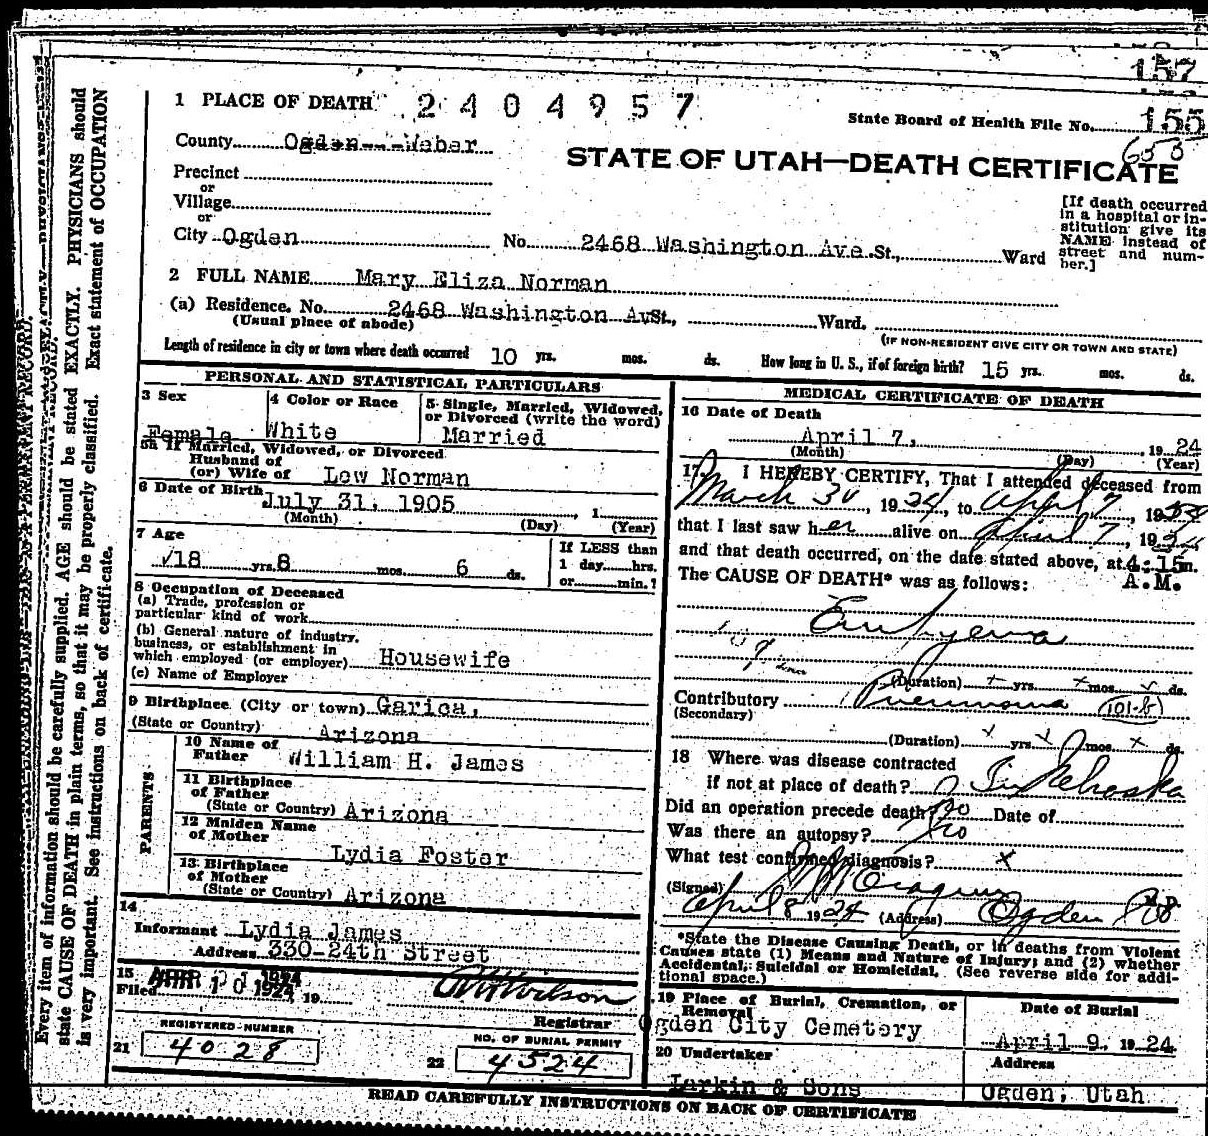 157
155
653
1 PLACE OF DEATH 2404957
State Board of Health File No.
County Ogden---Weber
STATE OF UTAH—DEATH CERTIFICATE
Precinct
or
Village
or
City Ogden No. 2468 Washington Ave. St., Ward
[If death occurred in a hospital or institution give its NAME instead of street and number.]
2 FULL NAME Mary Eliza Norman
(a) Residence. No. 2468 Washington Av St., Ward.
(Usual place of abode)
(IF NON-RESIDENT GIVE CITY OR TOWN AND STATE)
Length of residence in city or town where death occurred 10 yrs. mos. ds. How long in U. S., if of foreign birth? 15 yrs. mos. ds.
PERSONAL AND STATISTICAL PARTICULARS
3 Sex
Female
4 Color or Race
White
5 Single, Married, Widowed,
or Divorced (write the word)
Married
5a If Married, Widowed, or Divorced
Husband of
(or) Wife of Lew Norman
6 Date of Birth July 31, 1905 , 1
(Month) (Day) (Year)
7 Age
18 yrs. 8 mos. 6 ds.
If LESS than
1 day hrs.
or min.?
8 Occupation of Deceased
(a) Trade, profession or
particular kind of work
(b) General nature of industry,
business, or establishment in
which employed (or employer) Housewife
(c) Name of Employer
9 Birthplace (City or town) Garica,
(State or Country) Arizona
PARENTS
10 Name of
Father William H. James
11 Birthplace
of Father
(State or Country) Arizona
12 Maiden Name
of Mother
Lydia Foster
13 Birthplace
of Mother
(State or Country) Arizona
14
Informant Lydia James
Address 330-24th Street
15
Filed APR 10 1924 19
Wilson
Registrar
REGISTERED NUMBER
21 4028
NO. OF BURIAL PERMIT
22 4524
MEDICAL CERTIFICATE OF DEATH
16 Date of Death
April 7, 1924
(Month) (Day) (Year)
17 I HEREBY CERTIFY, That I attended deceased from
March 30, 1924, to April 7, 1924
that I last saw her alive on April 7, 1924
and that death occurred, on the date stated above, at 4:15 m.
A.M.
The CAUSE OF DEATH* was as follows:
Empyema
(Duration) yrs. mos. ds.
Contributory Pneumonia (101-B)
(Secondary)
(Duration) yrs. mos. ds.
18 Where was disease contracted
if not at place of death? In Nebraska
Did an operation precede death? No Date of
Was there an autopsy? No
What test confirmed diagnosis? x
(Signed) M.D.
April 8 1924 (Address) Ogden
*State the Disease Causing Death, or in deaths from Violent
Causes state (1) Means and Nature of Injury; and (2) whether
Accidental, Suicidal or Homicidal. (See reverse side for addi-
tional space.)
19 Place of Burial, Cremation, or
Removal
Ogden City Cemetery
Date of Burial
April 9, 1924
20 Undertaker
Larkin & Sons
Address
Ogden, Utah
READ CAREFULLY INSTRUCTIONS ON BACK OF CERTIFICATE
Every item of information should be carefully supplied. AGE should be stated EXACTLY. PHYSICIANS should
state CAUSE OF DEATH in plain terms, so that it may be properly classified. Exact statement of OCCUPATION
is very important. See instructions on back of certificate.